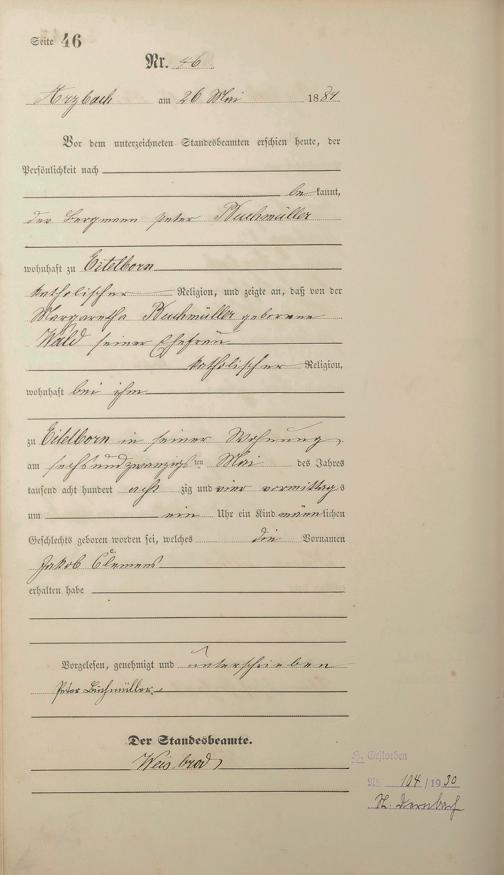 Seite 46
Nr. 46
Arzbach am 26 Mai 1884
Vor dem unterzeichneten Standesbeamten erschien heute, der
Persönlichkeit nach
be kannt,
der Bergmann Peter Buchmüller
wohnhaft zu Eitelborn
katholischer Religion, und zeigte an, daß von der
Margaretha Buchmüller geborene
Wald seiner Ehefrau
katholischer Religion,
wohnhaft bei ihm
zu Eitelborn in seiner Wohnung,
am sechsundzwanzigsten Mai des Jahres
tausend acht hundert acht zig und vier vormittags
um ein Uhr ein Kind männlichen
Geschlechts geboren worden sei, welches die Vornamen
Jakob Clemens
erhalten habe
Vorgelesen, genehmigt und unterschrieben
Peter Buchmüller
Der Standesbeamte.
Weisbrod
Gestorben
Nr. 104/1930
St. Dernbach